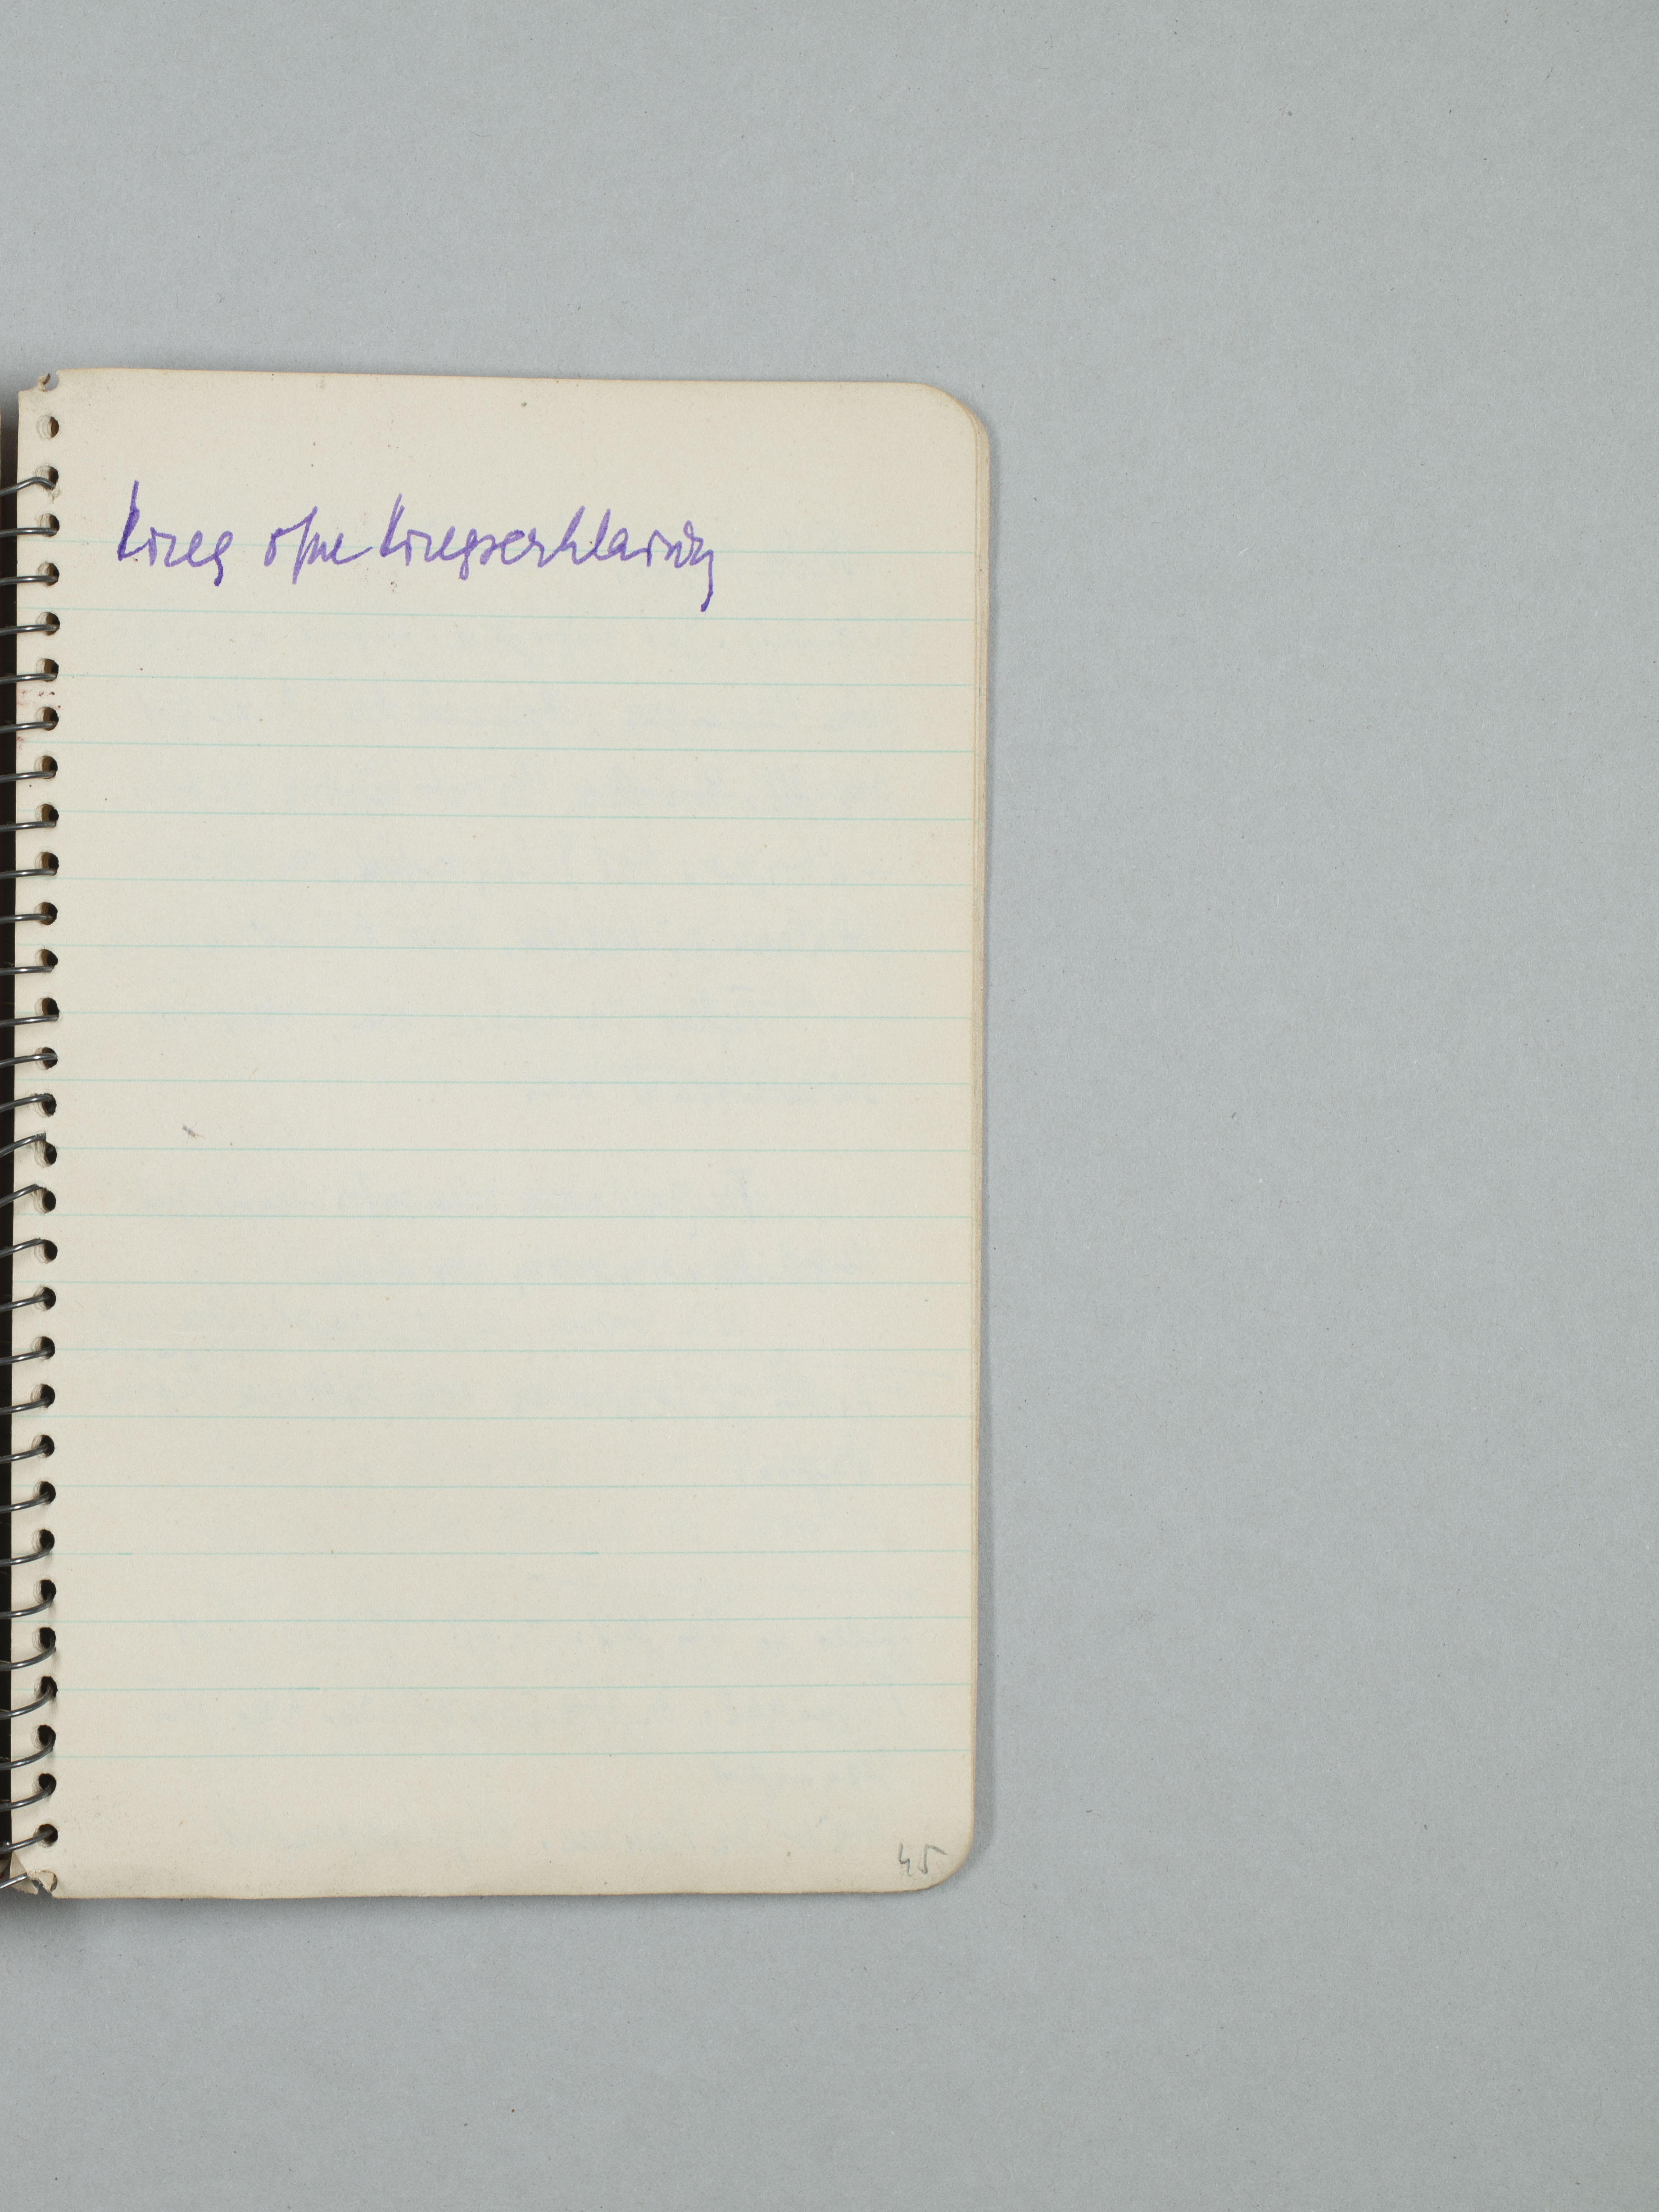 Krieg ohne Kriegserklärung
45